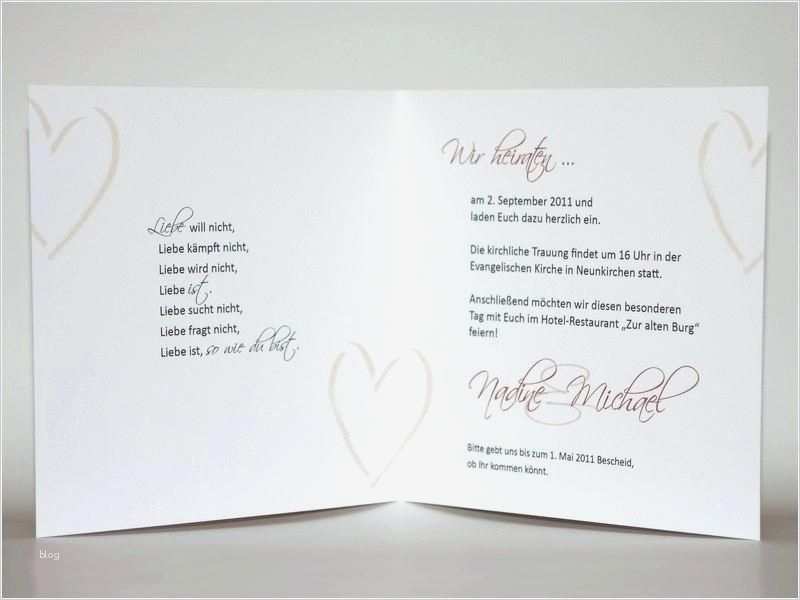 Liebe will nicht,
Liebe kämpft nicht,
Liebe wird nicht,
Liebe ist.
Liebe sucht nicht,
Liebe fragt nicht,
Liebe ist, so wie du bist.
Wir heiraten ...
am 2. September 2011 und
laden Euch dazu herzlich ein.
Die kirchliche Trauung findet um 16 Uhr in der
Evangelischen Kirche in Neunkirchen statt.
Anschließend möchten wir diesen besonderen
Tag mit Euch im Hotel-Restaurant „Zur alten Burg“
feiern!
Nadine & Michael
Bitte gebt uns bis zum 1. Mai 2011 Bescheid,
ob Ihr kommen könnt.
blog